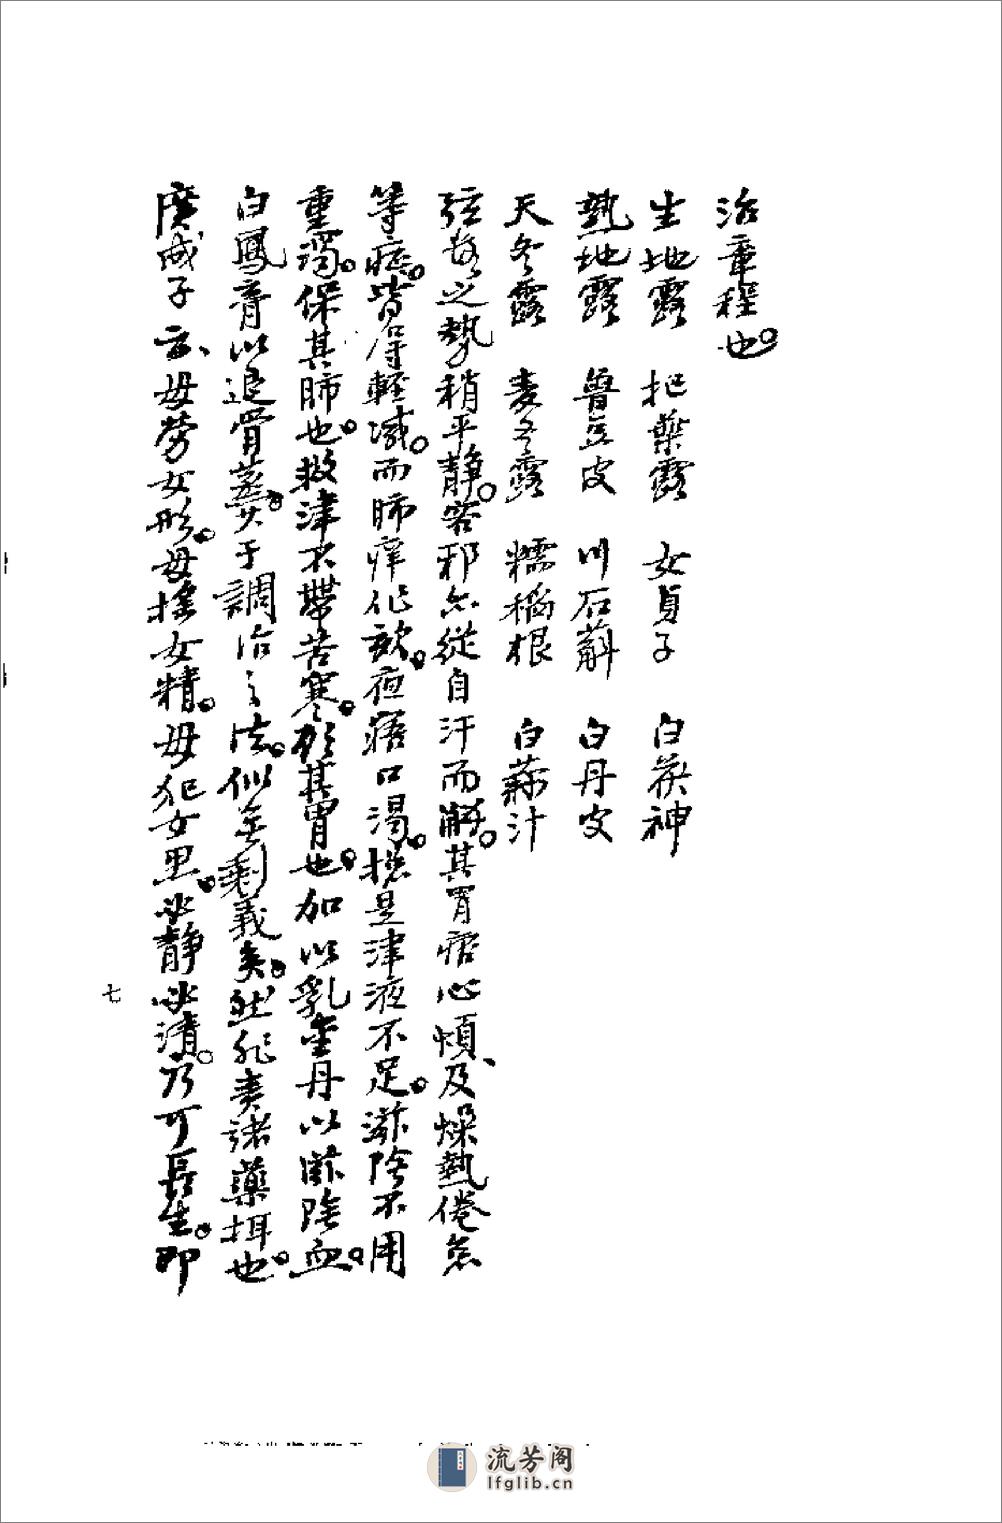 治章程也。
生地露　杞葉露　女貞子　白茯神
熟地露　魯豆皮　川石斛　白丹皮
天冬露　麦冬露　糯稻根　白蘇汁
弦数之勢稍平静。客邪亦從自汗而解。其胃痞心煩、及燥熱倦怠
等症。皆得輕减。而肺痒作欬。夜寤口渴。揔是津液不足。滋陰不用
重濁。保其肺也。救津不帶苦寒。顧其胃也。加以乳金丹以滋陰血。
白鳳膏以追骨蒸。于調治之法。似無剩義矣。然非夷諸藥揖也。
廣成子云、毋勞女形。毋搖女精。毋犯女思。必静必清。乃可長生。即
七
流芳阁
lfglib.cn